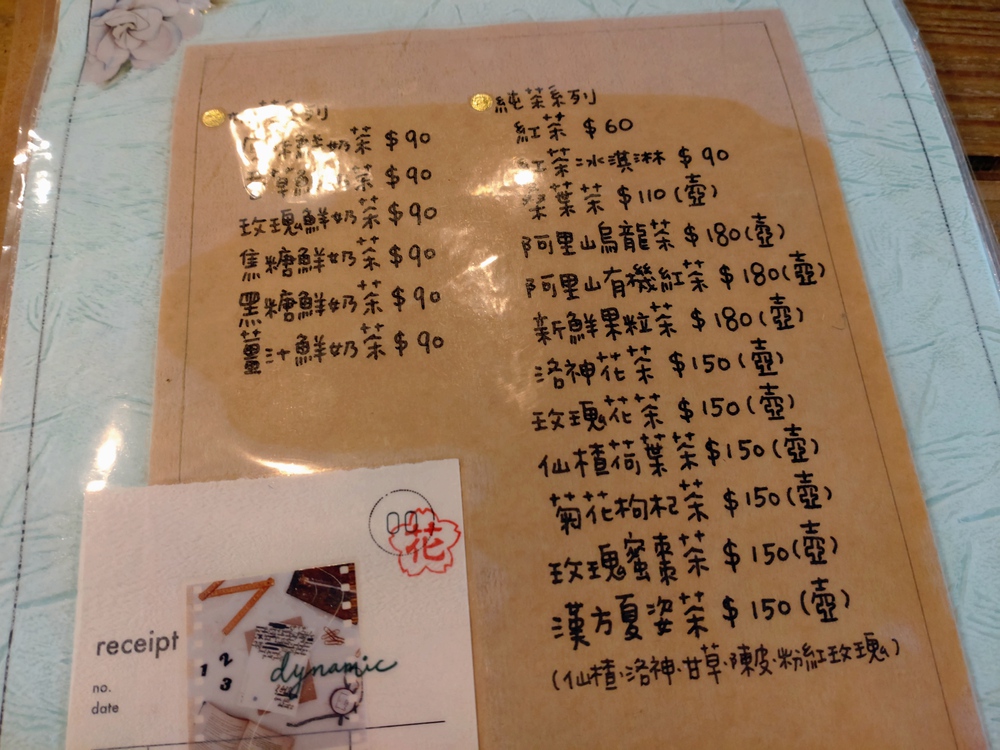 系列
鮮奶茶 $90
鮮奶茶 $90
玫瑰鮮奶茶 $90
焦糖鮮奶茶 $90
黑糖鮮奶茶 $90
薑汁鮮奶茶 $90
純茶系列
紅茶 $60
紅茶冰淇淋 $90
桑葉茶 $110(壺)
阿里山烏龍茶 $180(壺)
阿里山有機紅茶 $180(壺)
新鮮果粒茶 $180(壺)
洛神花茶 $150(壺)
玫瑰花茶 $150(壺)
仙楂荷葉茶 $150(壺)
菊花枸杞茶 $150(壺)
玫瑰蜜棗茶 $150(壺)
漢方夏姿茶 $150(壺)
(仙楂·洛神·甘草·陳皮·粉紅玫瑰)
花
receipt
no.
date
1 2
3
dynamic